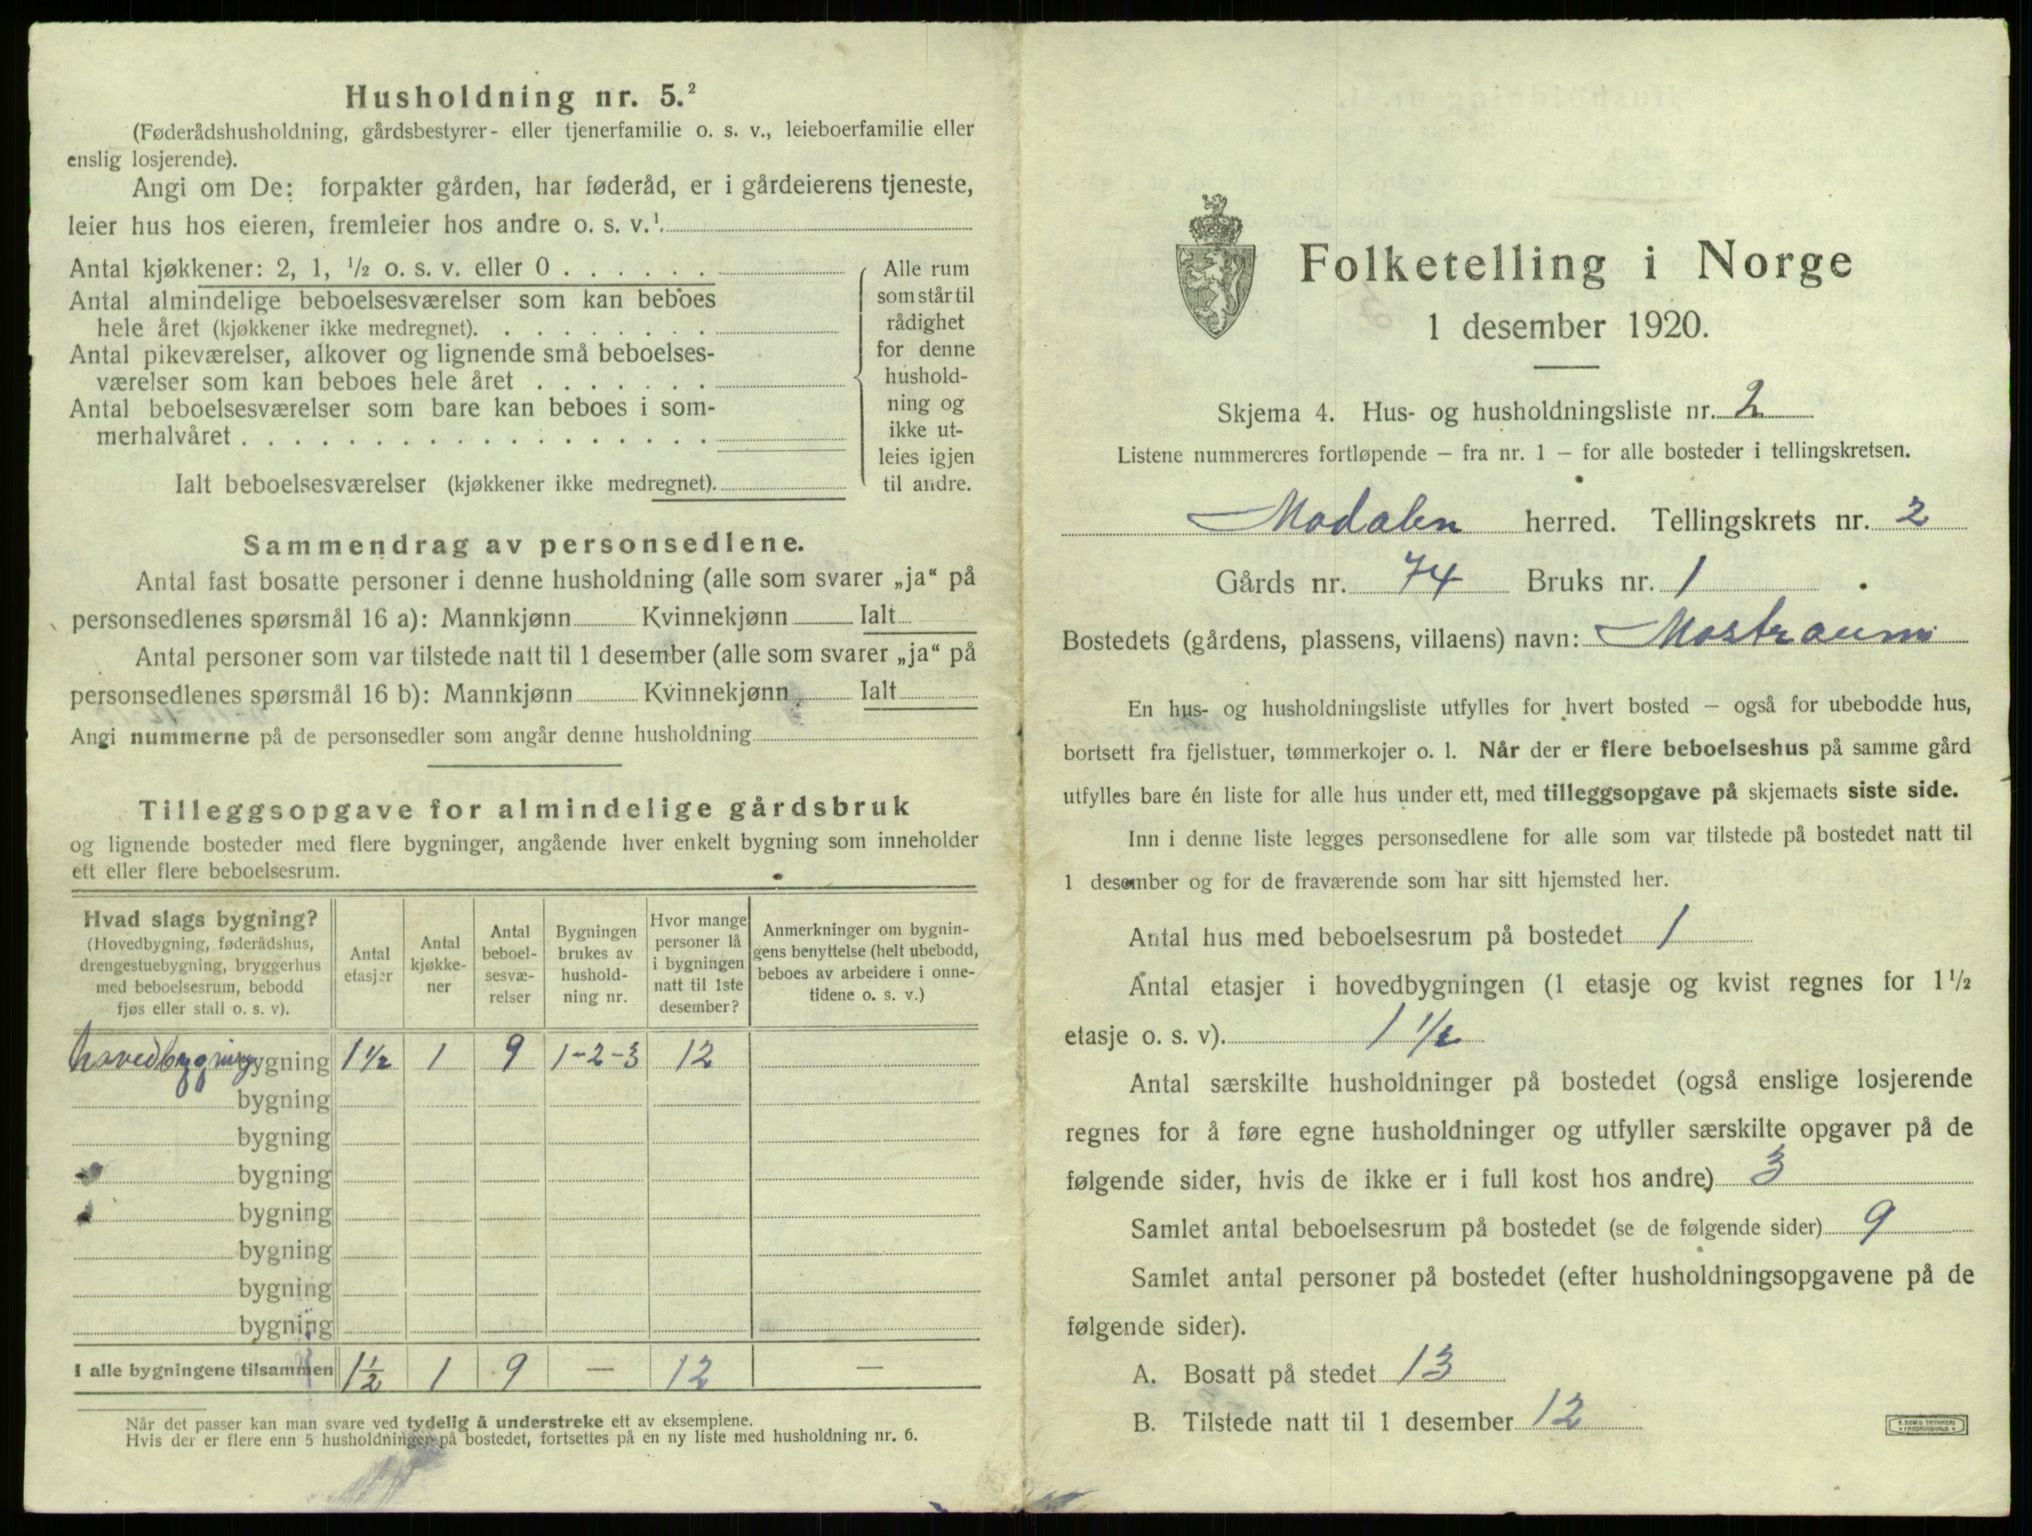 Husholdning nr. 5.²
(Føderådshusholdning, gårdsbestyrer- eller tjenerfamilie o. s. v., leieboerfamilie eller
enslig losjerende).
Angi om De: forpakter gården, har føderåd, er i gårdeierens tjeneste,
leier hus hos eieren, fremleier hos andre o. s. v.¹
Antal kjøkkener: 2, 1, ½ o. s. v. eller 0 . . . . . .
Antal almindelige beboelsesværelser som kan beboes
hele året (kjøkkener ikke medregnet). . . . . . . . .
Antal pikeværelser, alkover og lignende små beboelses-
værelser som kan beboes hele året . . . . . . .
Antal beboelsesværelser som bare kan beboes i som-
merhalvåret . . . . . . . . . . . . . . . . . .
Ialt beboelsesværelser (kjøkkener ikke medregnet).
Alle rum
som står til
rådighet
for denne
hushold-
ning og
ikke ut-
leies igjen
til andre.
Sammendrag av personsedlene.
Antal fast bosatte personer i denne husholdning (alle som svarer „ja“ på
personsedlenes spørsmål 16 a): Mannkjønn Kvinnekjønn Ialt
Antal personer som var tilstede natt til 1 desember (alle som svarer „ja“ på
personsedlenes spørsmål 16 b): Mannkjønn Kvinnekjønn Ialt
Angi nummerne på de personsedler som angår denne husholdning
Tilleggsopgave for almindelige gårdsbruk
og lignende bosteder med flere bygninger, angående hver enkelt bygning som inneholder
ett eller flere beboelsesrum.
Hvad slags bygning?
(Hovedbygning, føderådshus,
drengestuebygning, bryggerhus
med beboelsesrum, bebodd
fjøs eller stall o. s. v).
Antal
etasjer
Antal
kjøkke-
ner
Antal
beboel-
sesvæ-
relser
Bygningen
brukes av
hushold-
ning nr.
Hvor mange
personer lå
i bygningen
natt til 1ste
desember?
Anmerkninger om bygnin-
gens benyttelse (helt ubebodd,
beboes av arbeidere i onne-
tidene o. s. v.)
hovedbygning bygning 1½ 1 9 1-2-3 12
bygning
bygning
bygning
bygning
bygning
bygning
bygning
I alle bygningene tilsammen 1½ 1 9 — 12 —
Når det passer kan man svare ved tydelig å understreke ett av eksemplene.
Hvis der er flere enn 5 husholdninger på bostedet, fortsettes på en ny liste med husholdning nr. 6.
Folketelling i Norge
1 desember 1920.
Skjema 4. Hus- og husholdningsliste nr. 2
Listene nummereres fortløpende – fra nr. 1 – for alle bosteder i tellingskretsen.
Modalen herred. Tellingskrets nr. 2
Gårds nr. 74 Bruks nr. 1
Bostedets (gårdens, plassens, villaens) navn: Mostraum
En hus- og husholdningsliste utfylles for hvert bosted – også for ubebodde hus,
bortsett fra fjellstuer, tømmerkojer o. l. Når der er flere beboelseshus på samme gård
utfylles bare én liste for alle hus under ett, med tilleggsopgave på skjemaets siste side.
Inn i denne liste legges personsedlene for alle som var tilstede på bostedet natt til
1 desember og for de fraværende som har sitt hjemsted her.
Antal hus med beboelsesrum på bostedet 1
Antal etasjer i hovedbygningen (1 etasje og kvist regnes for 1½
etasje o. s. v). 1½
Antal særskilte husholdninger på bostedet (også enslige losjerende
regnes for å føre egne husholdninger og utfyller særskilte opgaver på de
følgende sider, hvis de ikke er i full kost hos andre) 3
Samlet antal beboelsesrum på bostedet (se de følgende sider) 9
Samlet antal personer på bostedet (efter husholdningsopgavene på de
følgende sider).
A. Bosatt på stedet 13
B. Tilstede natt til 1 desember 12